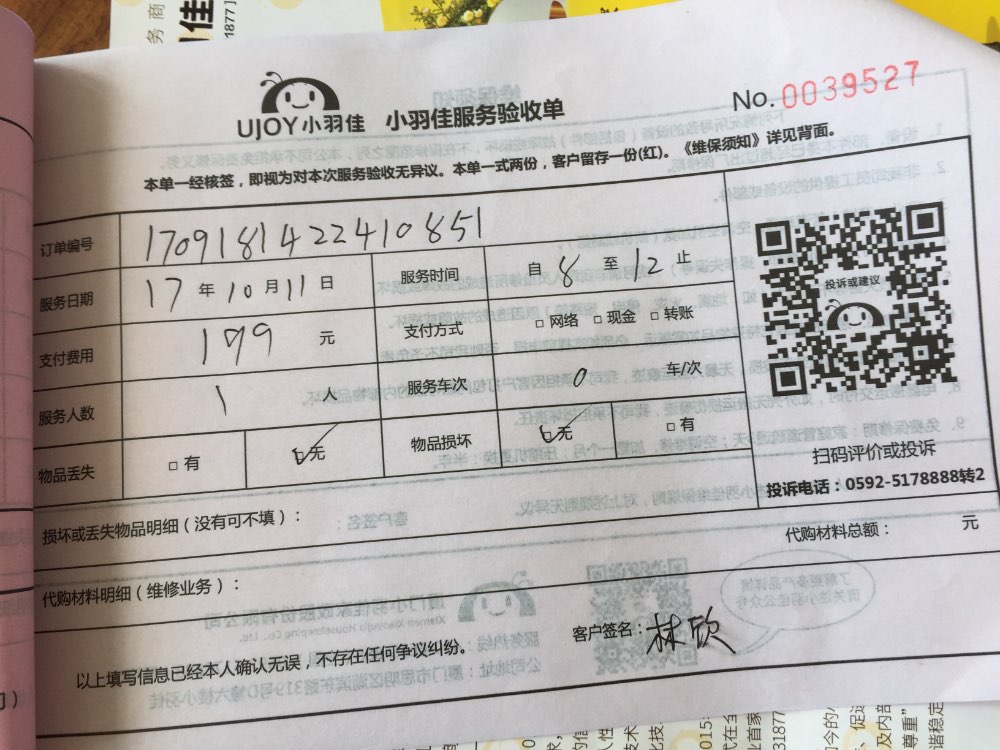 务商
佳
1877】
UJOY小羽佳 小羽佳服务验收单
No. 0039527
本单一经核签，即视为对本次服务验收无异议。本单一式两份，客户留存一份(红)。《维保须知》详见背面。
订单编号 170918142241085​1
服务日期 17 年 10 月 11 日 服务时间 自 8 至 12 止
支付费用 179 元 支付方式 □ 网络 □ 现金 □ 转账
服务人数 1 人 服务车次 0 车/次
物品丢失 □ 有 ☑ 无 物品损坏 ☑ 无 □ 有
投诉或建议
扫码评价或投诉
投诉电话：0592-5178888转2
损坏或丢失物品明细（没有可不填）：
代购材料总额： 元
代购材料明细（维修业务）：
以上填写信息已经本人确认无误，不存在任何争议纠纷。
客户签名：林欣